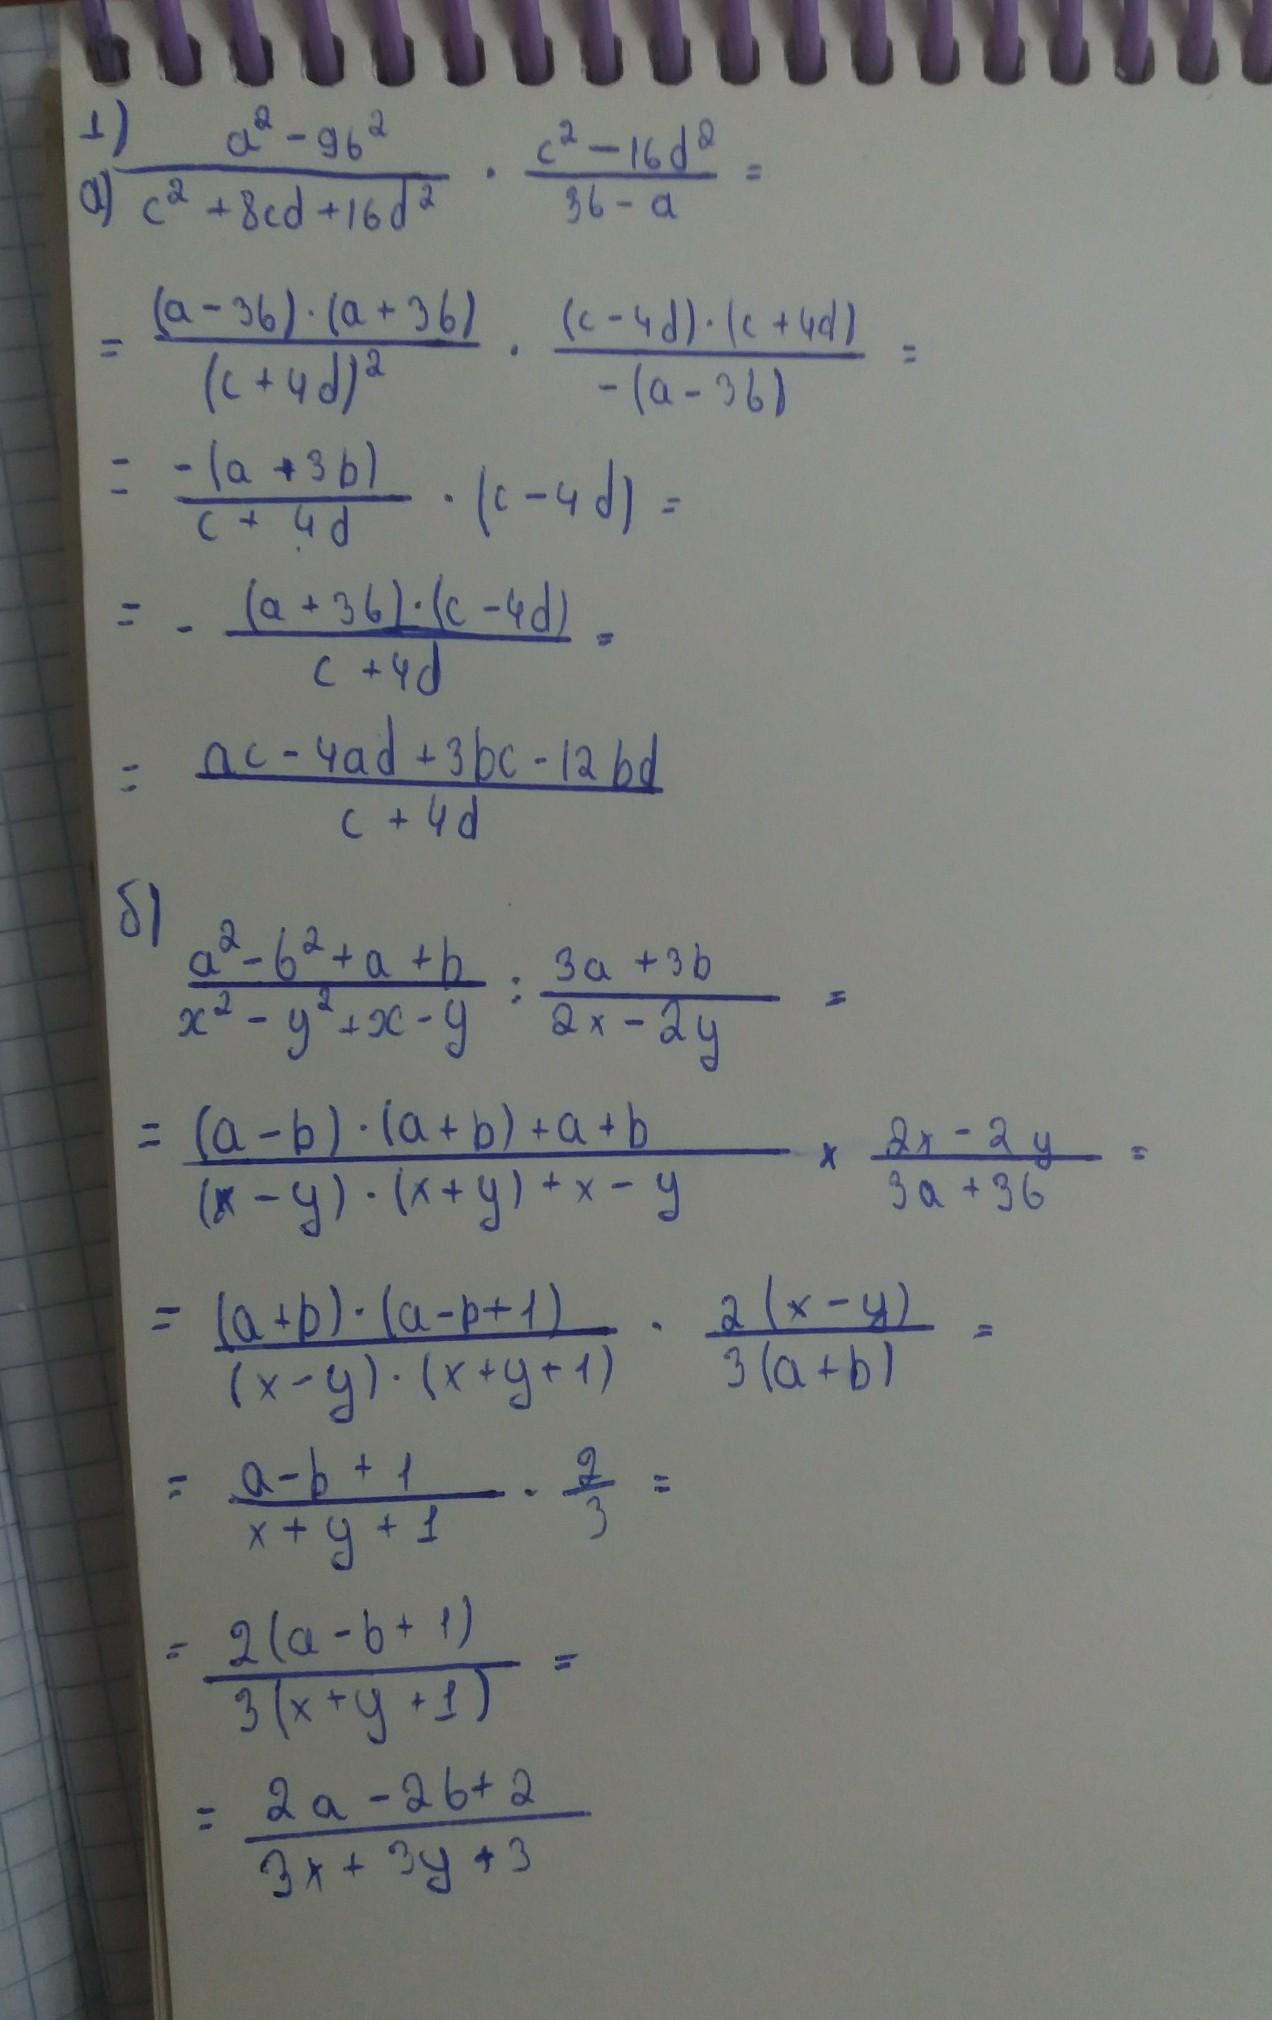 1)
а) (a² - 9b²)/(c² + 8cd + 16d²) · (c² - 16d²)/(3b - a) =
= ((a - 3b) · (a + 3b))/((c + 4d)²) · ((c - 4d) · (c + 4d))/(-(a - 3b)) =
= (-(a + 3b))/(c + 4d) · (c - 4d) =
= - ((a + 3b) · (c - 4d))/(c + 4d) =
= (ac - 4ad + 3bc - 12bd)/(c + 4d)
б)
(a² - b² + a + b)/(x² - y² + x - y) : (3a + 3b)/(2x - 2y) =
= ((a - b) · (a + b) + a + b)/((x - y) · (x + y) + x - y) × (2x - 2y)/(3a + 3b) =
= ((a + b) · (a - b + 1))/((x - y) · (x + y + 1)) · (2(x - y))/(3(a + b)) =
= (a - b + 1)/(x + y + 1) · 2/3 =
= (2(a - b + 1))/(3(x + y + 1)) =
= (2a - 2b + 2)/(3x + 3y + 3)